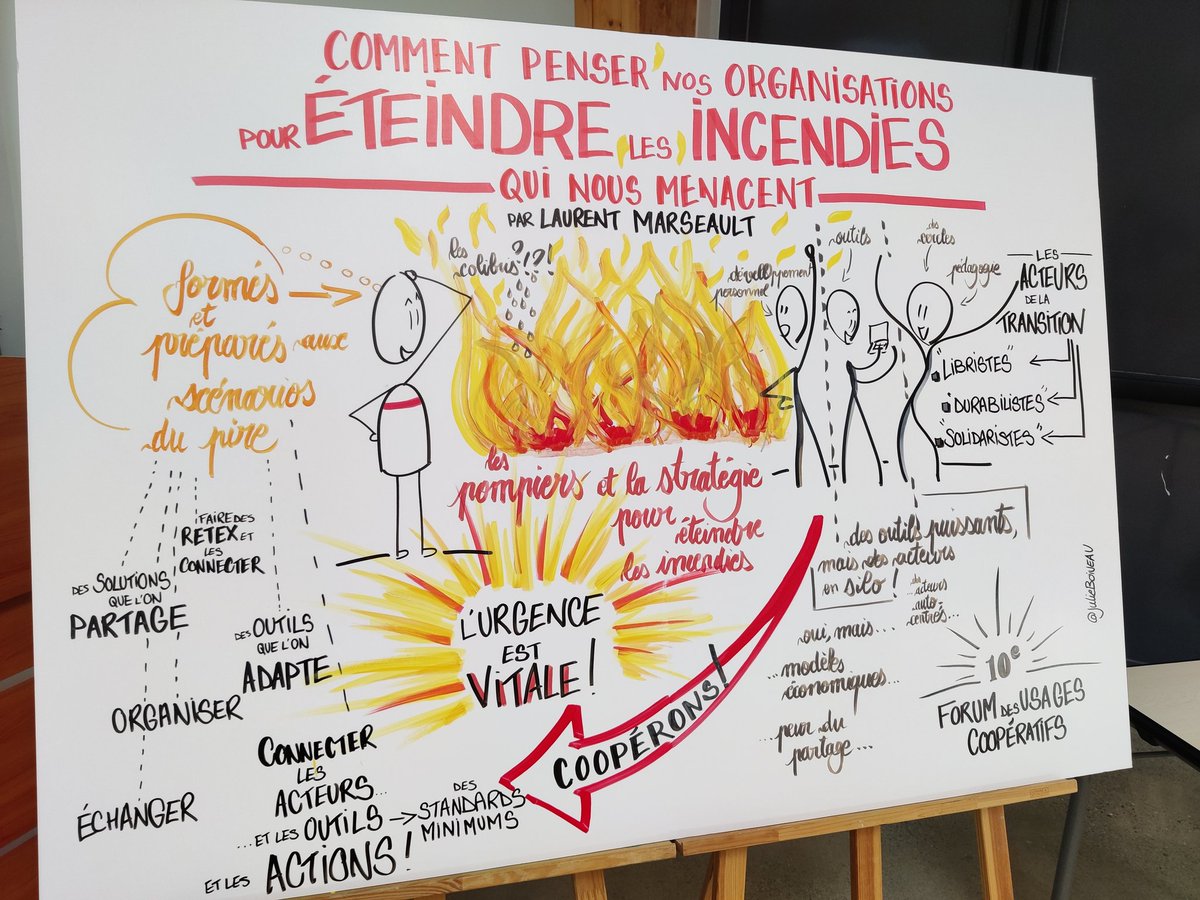 COMMENT PENSER NOS ORGANISATIONS
POUR ÉTEINDRE LES INCENDIES
QUI NOUS MENACENT
PAR LAURENT MARSEAULT
formés
et
préparés aux
scénarios
du pire
les
colibris
???!
développement
personnel
outils
des
cercles
pédagogie
LES
ACTEURS
DE LA
TRANSITION
"LIBRISTES"
"DURABILISTES"
"SOLIDARISTES"
les
pompiers et la stratégie
pour
éteindre
les incendies
FAIRE DES
RETEX ET
LES
CONNECTER
DES SOLUTIONS
QUE L'ON
PARTAGE
DES OUTILS
QUE L'ON
ADAPTE
ORGANISER
ÉCHANGER
CONNECTER
LES
ACTEURS...
...ET LES OUTILS
ET LES ACTIONS!
→ DES
STANDARDS
MINIMUMS
L'URGENCE
EST
VITALE!
COOPÉRONS!
des outils puissants,
mais des acteurs
en silo!
des
acteurs
auto-
centrés...
oui, mais...
...modèles
économiques...
...peur du
partage...
10e
FORUM DES USAGES
COOPÉRATIFS
@JulieBoiveau